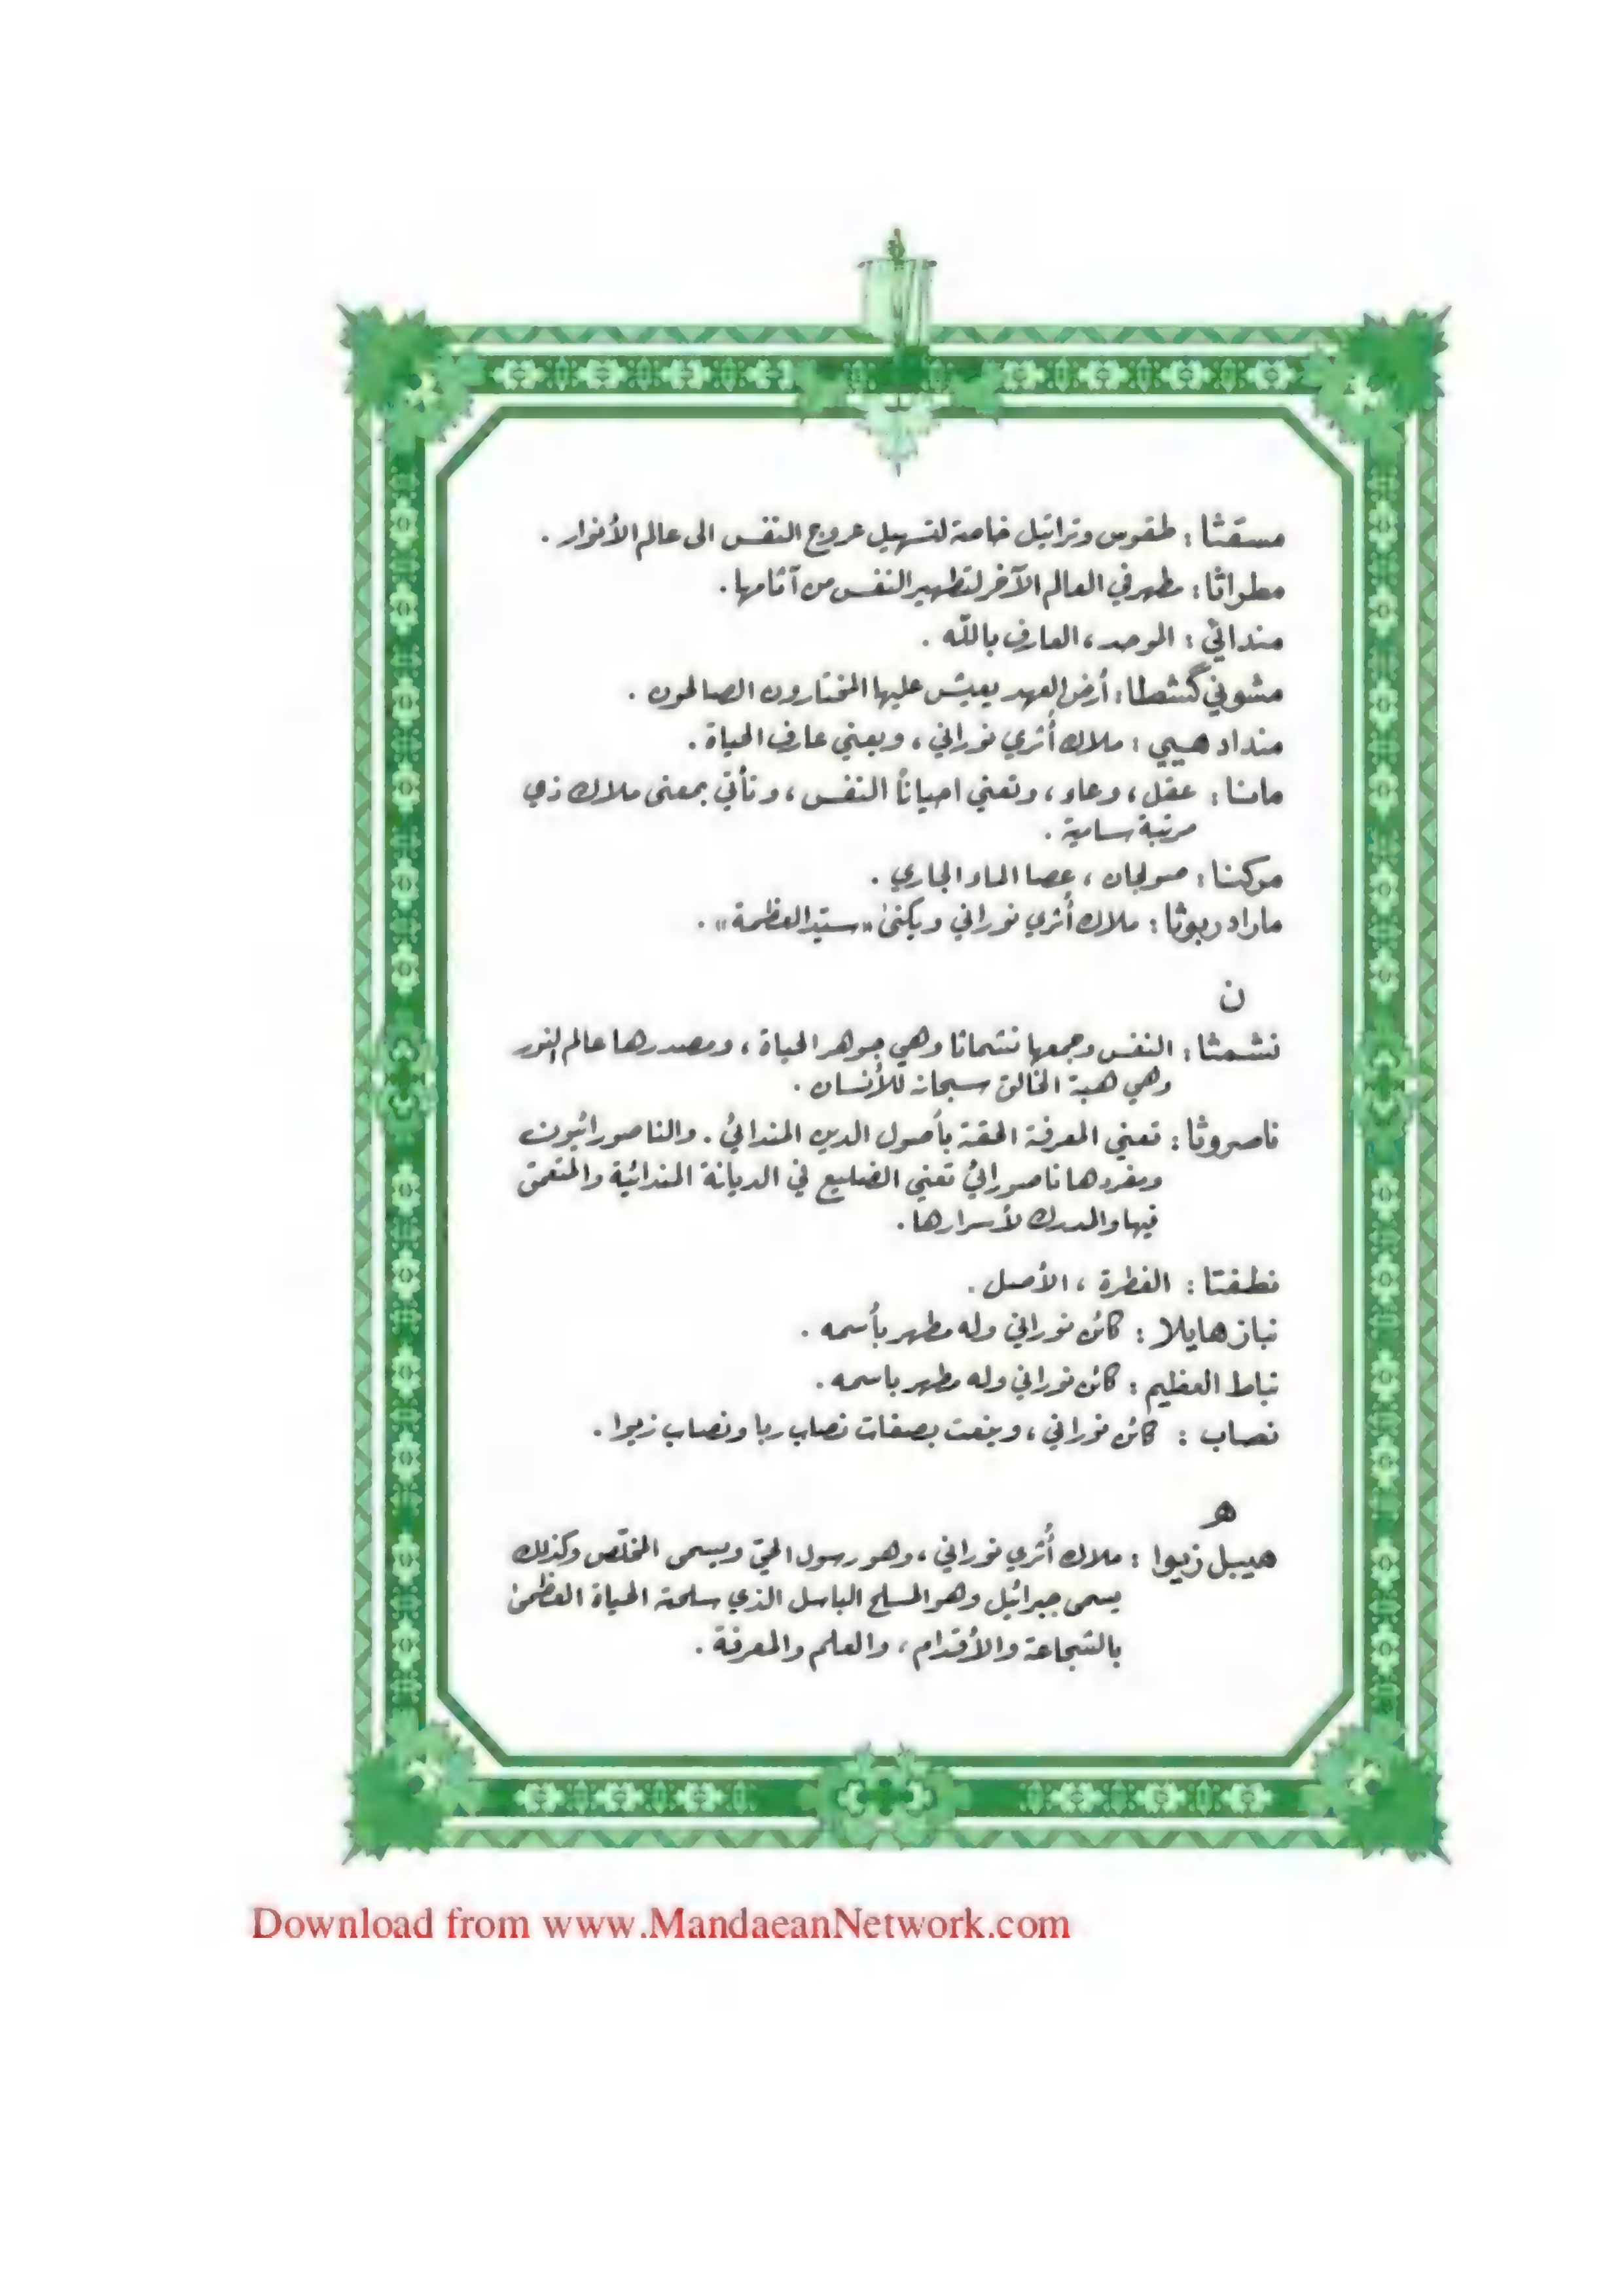 مسقثا : طقوس وتراتيل خاصة لتسهيل عروج النفس الى عالم الأنوار .
مطراثا : مطهر في العالم الآخر لتطهير النفس من آثامها .
مندائي : الموحد ، العارف بالله .
مشوني گشطا : أرض العهد يعيش عليها المختارون الصالحون .
منداد هيي : ملاك أثري نوراني ، ويعني عارف الحياة .
مانا : عقل ، وعاء ، وتعني احياناً النفس ، وتأتي بمعنى ملاك ذي
مرتبة سامية .
مركنا : صولجان ، عصا الماء الجاري .
ماراد ربوثا : ملاك أثري نوراني ويكنى «سيّد العظمة» .
ن
نشمثا : النفس وجمعها نشماثا وهي جوهر الحياة ، ومصدرها عالم النور
وهي هبة الخالق سبحانه للأنسان .
ناصروثا : تعني المعرفة الحقة بأصول الدين المندائي . والناصورائيون
ومفردها ناصورائي تعني الضليع في الديانة المندائية والمتعمق
فيها والمدرك لأسرارها .
نطفتا : الفطرة ، الأصل .
نباز هايلا : كائن نوراني وله مطهر بأسمه .
نباط العظيم : كائن نوراني وله مطهر باسمه .
نصاب : كائن نوراني ، وينعت بصفات نصاب ربا ونصاب زيوا .
هـ
هيبل زيوا : ملاك أُثري نوراني ، وهو رسول الحيّ ويسمى المخلّص وكذلك
يسمى جبرائيل وهو المسلح الباسل الذي سلحته الحياة العظمى
بالشجاعة والأقدام ، والعلم والمعرفة .
Download from www.MandaeanNetwork.com